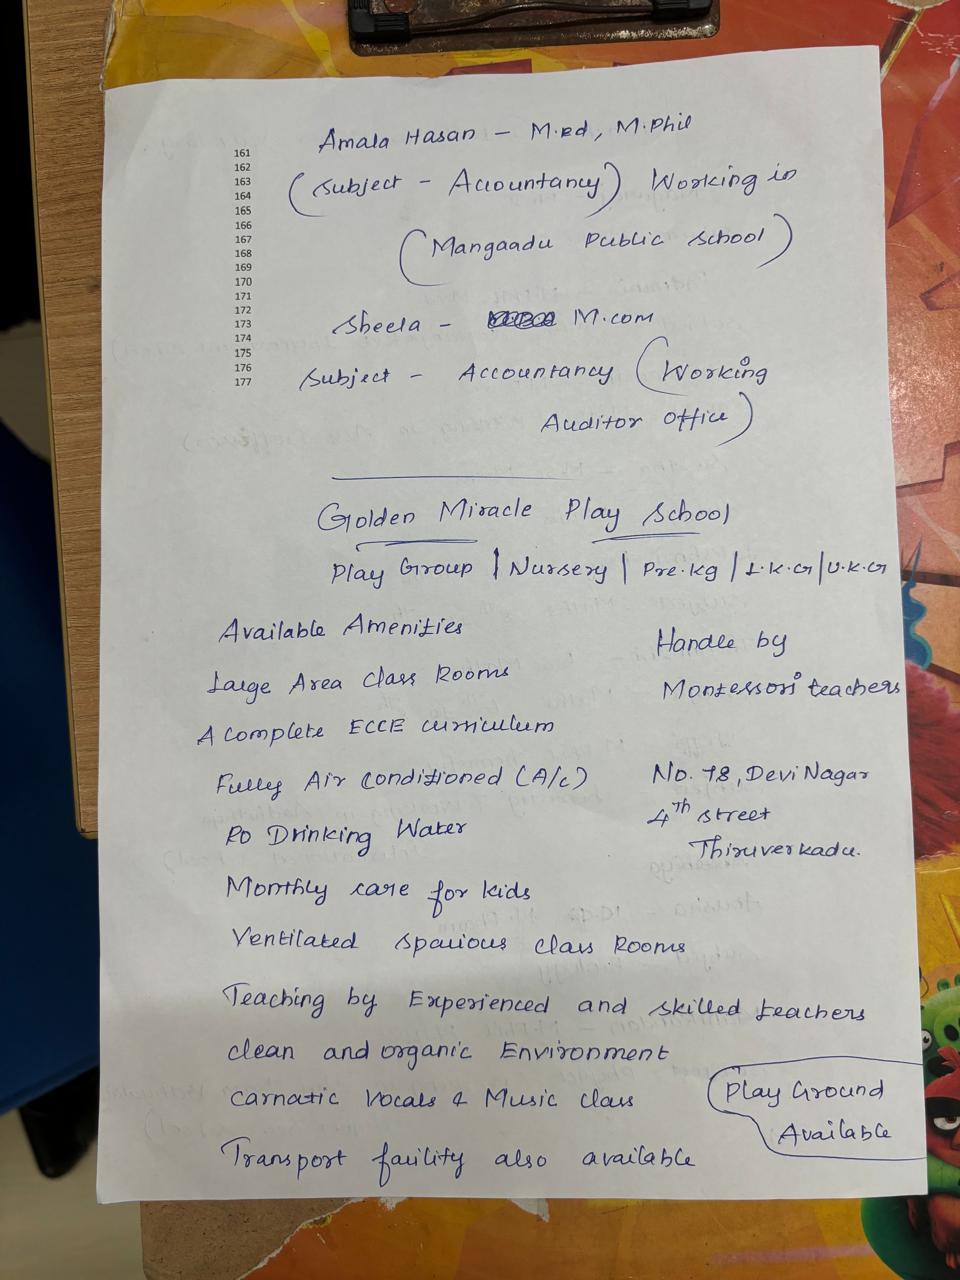 Amala Hasan - M.ed, M.Phil
161
162
163
164
165
166
167
168
169
170
171
172
173
174
175
176
177
(Subject - Accountancy) Working in
(Mangaadu Public School)
Sheela - M.com
Subject - Accountancy (Working
Auditor office)
Golden Miracle Play School
Play Group | Nursery | Pre.kg | L.K.G | U.K.G
Available Amenities
Large Area Class Rooms
A complete ECCE curriculum
Fully Air Conditioned (A/c)
RO Drinking Water
Monthly care for kids
Ventilated spacious class Rooms
Teaching by Experienced and skilled teachers
clean and organic Environment
carnatic vocals & Music class
Transport facility also available
Handle by
Montessori teachers
No. 78, Devi Nagar
4th street
Thiruverkadu.
Play Ground
Available